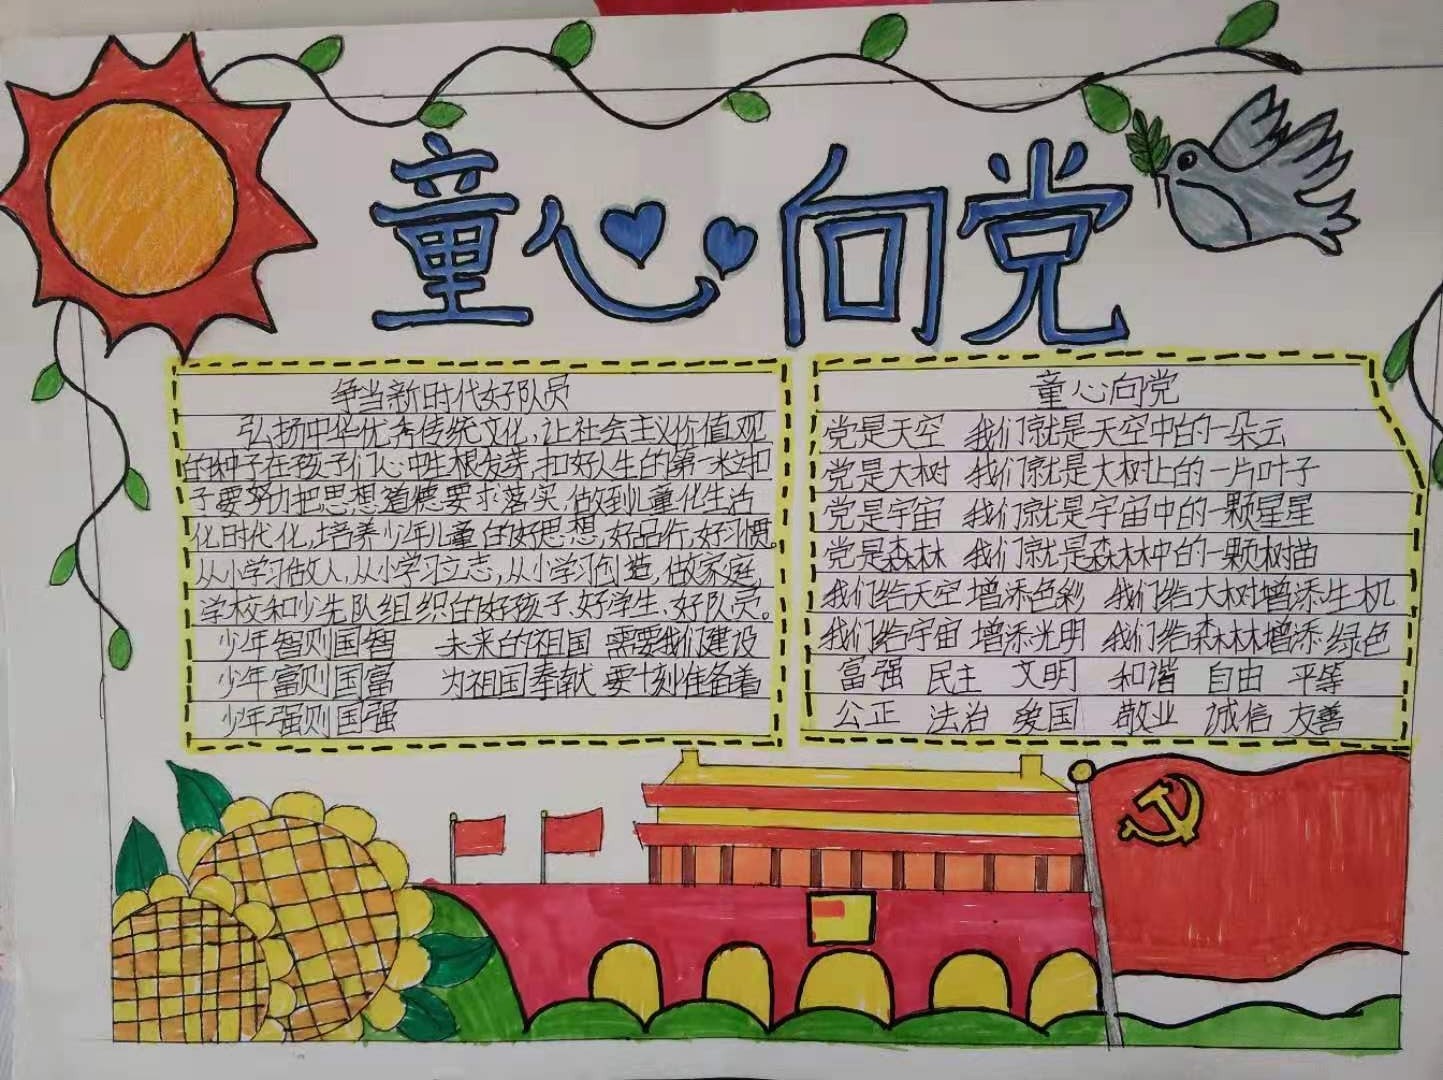 童心向党
争当新时代好队员
弘扬中华优秀传统文化,让社会主义价值观
的种子在孩子们心中生根发芽,扣好人生的第一粒扣
子要努力把思想道德要求落实,做到儿童化生活
化时代化,培养少年儿童的好思想,好品行,好习惯。
从小学习做人,从小学习立志,从小学习创造,做家庭,
学校和少先队组织的好孩子、好学生、好队员。
少年智则国智 未来的祖国 需要我们建设
少年富则国富 为祖国奉献 要时刻准备着
少年强则国强
童心向党
党是天空 我们就是天空中的一朵云
党是大树 我们就是大树上的一片叶子
党是宇宙 我们就是宇宙中的一颗星星
党是森林 我们就是森林中的一颗树苗
我们给天空增添色彩 我们给大树增添生机
我们给宇宙增添光明 我们给森林增添绿色
富强 民主 文明 和谐 自由 平等
公正 法治 爱国 敬业 诚信 友善